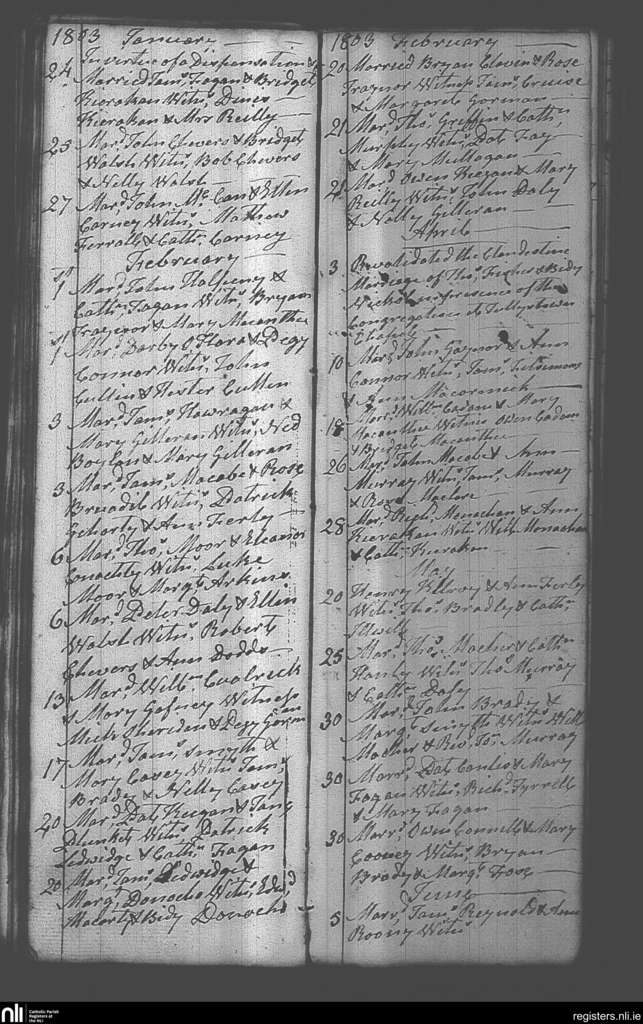 1803 January
24 In vertue of a Dispensation
Married Jams. Fagan & Bridget
Kierakan Witns. Denis
Kierakan & Mrs Reilly
25 Mard. John Chevers & Bridget
Walsh Witns. Bob Chevers
& Nelly Walsh
27 Mard. John McCan & Ellen
Carney Witns. Mathew
Ferrall & Cathn. Carney
February
1st Mard. John Halpeny &
Cathn. Fagan Witns. Bryan
Traynor & Mary Macanthe
1st Mard. Darby O Hara & Pegy
Connor Witns. John
Cullin & Hester Cullen
3 Mard. Jams. Hawragan &
Mary Gilleran Witns. Ned
Boylan & Mary Gilleran
3 Mard. Jams. Macabe & Rose
Witns. Patrick
& Ann Ferley
6 Mard. Thos. Moor & Eleanor
Witns. Luke
Moor & Margt. Arkins
6 Mard. Peter Daly & Ellen
Walsh Witns. Robert
Chevers & Ann Dodds
13 Mard. Willm.
& Mary Gafney Witness
Mich. Sheridan & Pegy Gorman
17 Mard. Jams. Smyth &
Mary Cavey Witns. Jams.
Brady & Nelly Cavey
20 Mard. Pat Keegan & Jane
Plunket Witns. Patrick
Ledwidge & Cathn. Fagan
20 Mard. Jams. Ledwidge &
Margt. Donocho Witns. Edwd.
& Bidy Donocho
1803 February
20 Married Bryan Clavin & Rose
Traynor Witness Jams. Cruise
& Margaret Gorman
21 Mard. Thos. Griffin & Cathn.
Murphy Witns. Pat Fay
& Mary Mullagan
21 Mard. Owen Keegan & Mary
Reilly Witns. John Daly
& Nelly Gilleran
April
3 Revalidated the Clandestine
Marriage of Thos. Fisher & Bidy
in presence of the
Congregation at Tullystown
Chapel
10 Mard. John Gaynor & Ann
Connor Witns. Jams. Fitsimons
& Ann Macormick
18 Marrd. Willm. Cadan & Mary
Macanthee Witness Owen Cadan
& Bridget Macanthee
26 Mard. John Macabe & Ann
Murray Witns. Jams. Murray
& Rose
28 Mard. Richd. Monachan & Ann
Kierakan Witns. Willm. Monachan
& Cathn. Kierakan
May
20 Henry Kilroy & Ann Ferley
Witns. Thos. Bradly & Cathn.
25 Mard. Thos. Maeher & Cathn.
Hanly Witns. Thos. Murray
& Cathn. Daly
30 Mard. John Brady &
Margt. Smyth Witns. Will
Maeher & Revd. Jos. Murray
30 Marrd. Pat & Mary
Fagan Witns. Richd. Tyrrell
& Mary Fagan
30 Marrd. Owen Connell & Mary
Cooney Witns. Bryan
Brady & Margt. Foxe
June
5 Marrd. Jams. Reynold & Ann
Roony Witns.
nli
Catholic Parish
Registers at
the NLI
registers.nli.ie